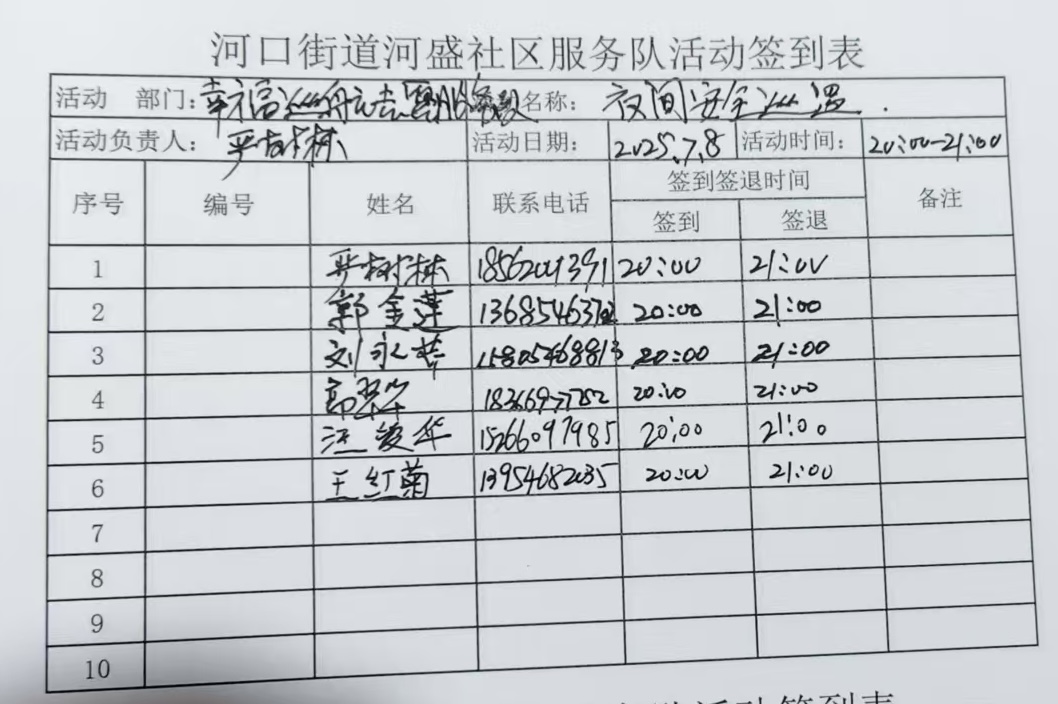 河口街道河盛社区服务队活动签到表
活动 部门: 幸福 名称: 夜间安全巡逻.
活动负责人: 严树栋 活动日期: 2025.7.8 活动时间: 20:00-21:00
序号 编号 姓名 联系电话 签到签退时间 备注
签到 签退
1 严树栋 20:00 21:00
2 郭金莲 20:00 21:00
3 刘永 15805468813 20:00 21:00
4 20:00 21:00
5 汪 华 15266097985 20:00 21:00
6 王红菊 13954682035 20:00 21:00
7
8
9
10
活动签到表